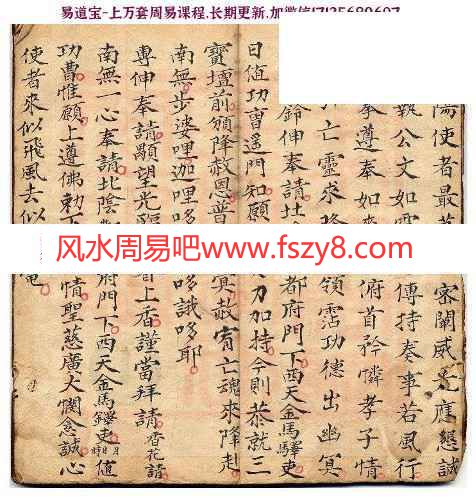 易道宝-上万套周易课程,长期更新,加微信
陽使者最
密闡威光應懇誠
執公文如
傳持奏事若風行
遵奉如
俯首矜憐孝子情
亡靈求
領霑功德出幽冥
鈴伸奉請
都府門下西天金馬驛吏
日值功曹遥門知願
力加持今則恭就三
寶壇前頒降赦恩普
冥赦宥亡魂來降赴
南無步婆哩迦哩哆
哆誐哆耶
專伸奉請願望光臨
上香謹當拜請香花請
南無一心奉請北陰
府門下西天金馬驛吏 值
功曹惟願上遵佛勅下
情聖慈廣大憫念誠心
使者來似飛風去似
风水周易吧www.fszy8.com